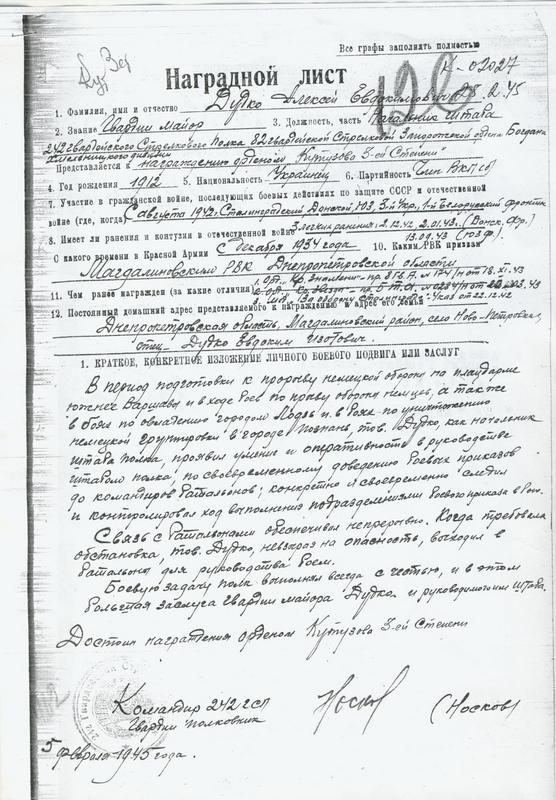 Все графы заполнять полностью
Кут 3 ст
н-02027
Наградной лист
120
18.2.45
1. Фамилия, имя и отчество Дудко Алексей Евдокимович
2. Звание Гвардии майор 3. Должность, часть Начальник штаба
242 гвардейского Стрелкового полка 82 гвардейской Стрелковой Запорожской ордена Богдана
Хмельницкого дивизии
Представляется к награждению орденом Кутузова 3-ей Степени
4. Год рождения 1912 5. Национальность Украинец 6. Партийность Член ВКП(б)
7. Участие в гражданской войне, последующих боевых действиях по защите СССР и отечественной
войне (где, когда) С августа 1942г. Сталинградский, Донской, ЮЗ, 3-й Укр., 1-й Белорусский фронты
8. Имеет ли ранения и контузии в отечественной войне 3 легких ранения: 2.12.42 2.01.43г. (Донск. Фр.)
13.09.43 (ЮЗФ).
С какого времени в Красной Армии С декабря 1934 года 10. Каким РВК призван
Магдалиновским РВК Днепропетровской области
11. Чем ранее награжден (за какие отличия)
18.XI.43
3. Мед. "За оборону Сталинграда" Указ от 22.12.42
12. Постоянный домашний адрес представляемого к награждению и адрес его семьи
Днепропетровская область, Магдалиновский район, село Ново-Петровка,
отец - Дудко Евдоким Изотович.
1. КРАТКОЕ, КОНКРЕТНОЕ ИЗЛОЖЕНИЕ ЛИЧНОГО БОЕВОГО ПОДВИГА ИЛИ ЗАСЛУГ
В период подготовки к прорыву немецкой обороны на плацдарме
южнее Варшавы и в ходе боев по прорыву обороны немцев, а также
в боях по овладению городом Лодзь и в боях по уничтожению
немецкой группировки в городе Познань тов. Дудко, как начальник
штаба полка, проявил умение и оперативность в руководстве
штабом полка, по своевременному доведению боевых приказов
до командиров батальонов; конкретно и своевременно следил
и контролировал ход выполнения подразделениями боевого приказа в бою.
Связь с батальонами обеспечивал непрерывно. Когда требовала
обстановка, тов. Дудко, невзирая на опасность, выходил в
батальоны для руководства боем.
Боевую задачу полк выполнял всегда с честью, и в этом
большая заслуга Гвардии майора Дудко и руководимого им штаба.
Достоин награждения орденом Кутузова 3-ей Степени
Командир 242 гсп
Гвардии полковник Носков (Носков)
5 февраля 1945 года.